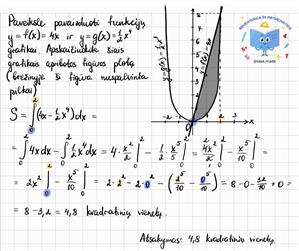 Paveiksle pavaizduoti funkcijų
y = f(x) = 4x ir y = g(x) = ½x⁴
grafikai. Apskaičiuokite šiais
grafikais apribotos figūros plotą
(brėžinyje ši figūra nuspalvinta
pilkai)
S = ∫₀² (4x - ½x⁴) dx =
= ∫₀² 4x dx - ∫₀² ½x⁴ dx = 4 · x²/2 |₀² - ½ · x⁵/5 |₀² = 4x²/2 |₀² - x⁵/10 |₀² =
= 2x² |₀² - x⁵/10 |₀² = 2·2² - 2·0² - (2⁵/10 - 0⁵/10) = 8 - 0 - 32/10 + 0 =
= 8 - 3,2 = 4,8 kvadratinių vienetų.
Atsakymas: 4,8 kvadratinių vienetų.
y = g(x) = ½x⁴
8
0
2
x